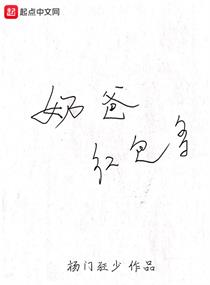 起点 起点中文网
奶爸
红包多
杨门 少 作品